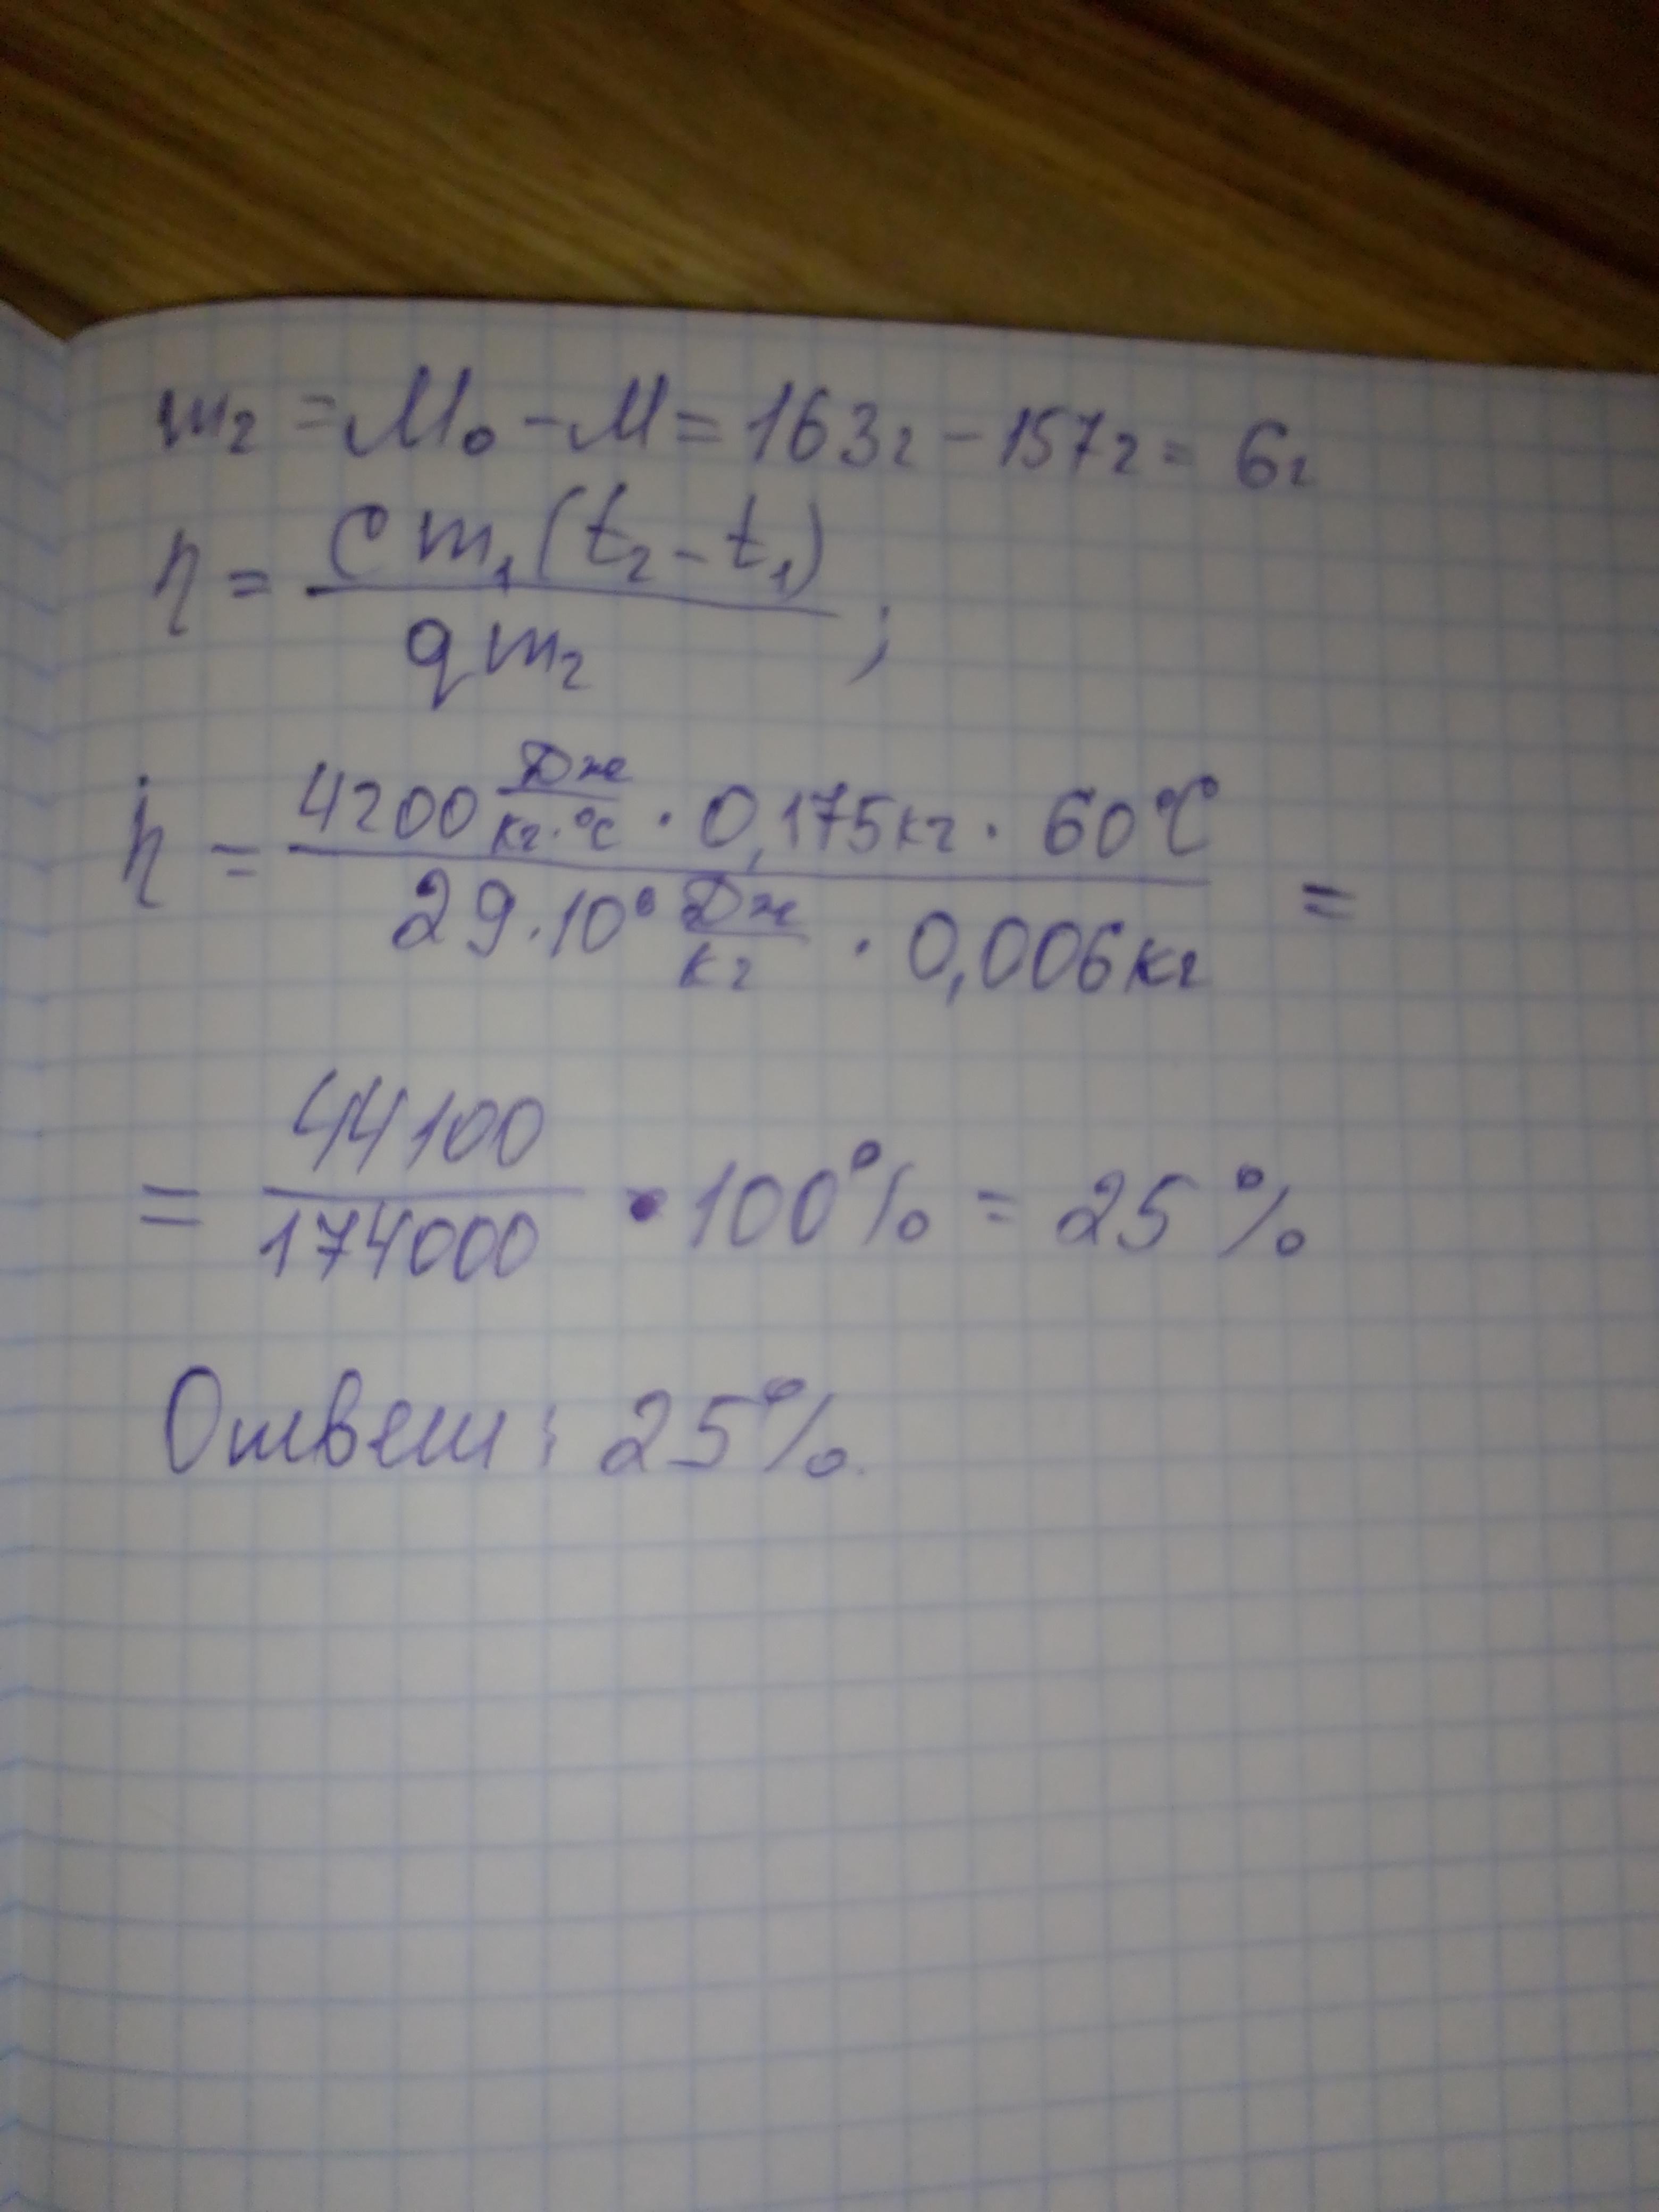 m₂ = M₀ - M = 163г - 157г = 6г
η = c m₁ (t₂ - t₁) / q m₂ ;
η = 4200 Дж/кг·°C · 0,175кг · 60°C / 29·10⁶ Дж/кг · 0,006кг =
= 44100 / 174000 · 100% = 25%
Ответ: 25%.